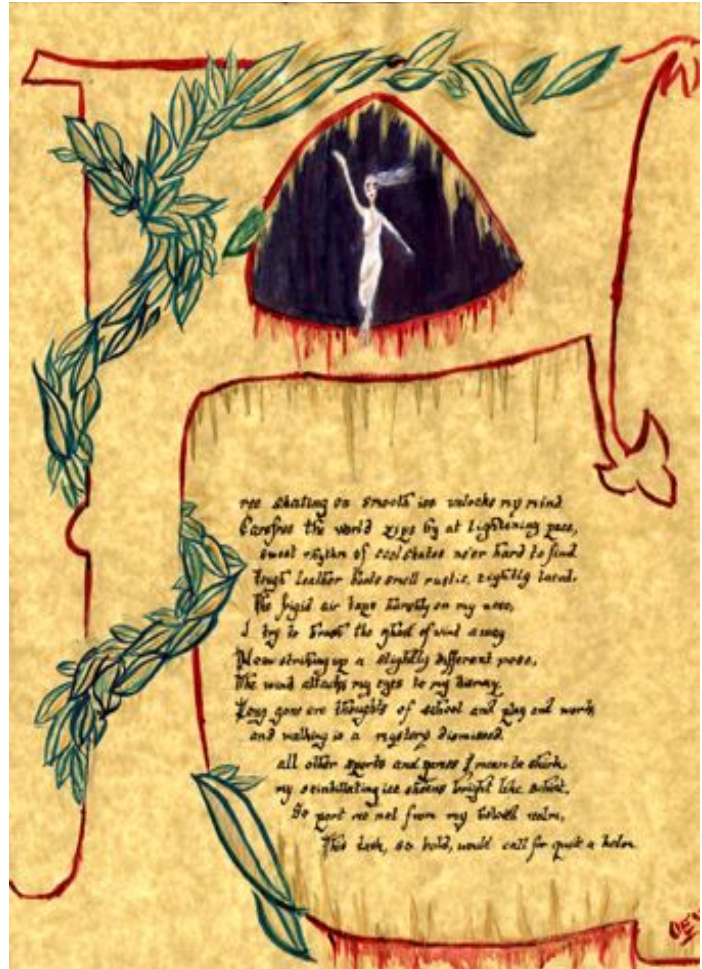 ree skating on smooth ice unlocks my mind
Carefree the world zips by at lightening pace,
sweet rhythm of cool skates ne'er hard to find
Tough leather boots smell rustic, tightly laced.
The frigid air taps harshly on my nose,
I try to brush the ghost of wind away
Now striking up a slightly different pose,
The wind attacks my eyes to my dismay.
Long gone are thoughts of school and play and work,
and walking is a mystery dismissed.
all other sports and games I mean to shirk,
my scintillating ice sheens bright like
So part me not from my realm,
This task, so bold, would call for quit a helm